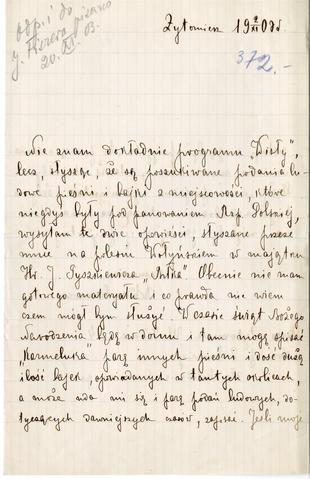 odp. i do
J. Fierera pisano
20. XI. 03.
Żytomierz 19 9/XI 03 r.
372.-
Nie znam dokładnie programu „Wisły",
lecz, słysząc, że są poszukiwane podania lu-
dowe pieśni i bajki z miejscowości, które
niegdyś były pod panowaniem Rzp. Polskiej,
wysyłam te dwie opowieści, słyszane przeze
mnie na polesiu Wołyńskiem w majątku
Hr. J. Tyszkiewicza „Antka". Obecnie nie mam
gotowego materyału i co prawda nie wiem
czem mógł bym służyć. W czasie świąt Bożego
Narodzenia będę w domu i tam mogę spisać
„Karmeluka" parę innych pieśni i dość dużą
ilość bajek, opowiadanych w tamtych okolicach,
a może uda mi się i parę podań ludowych, do-
tyczących dawniejszych czasów, zapisać. Jeśli moje